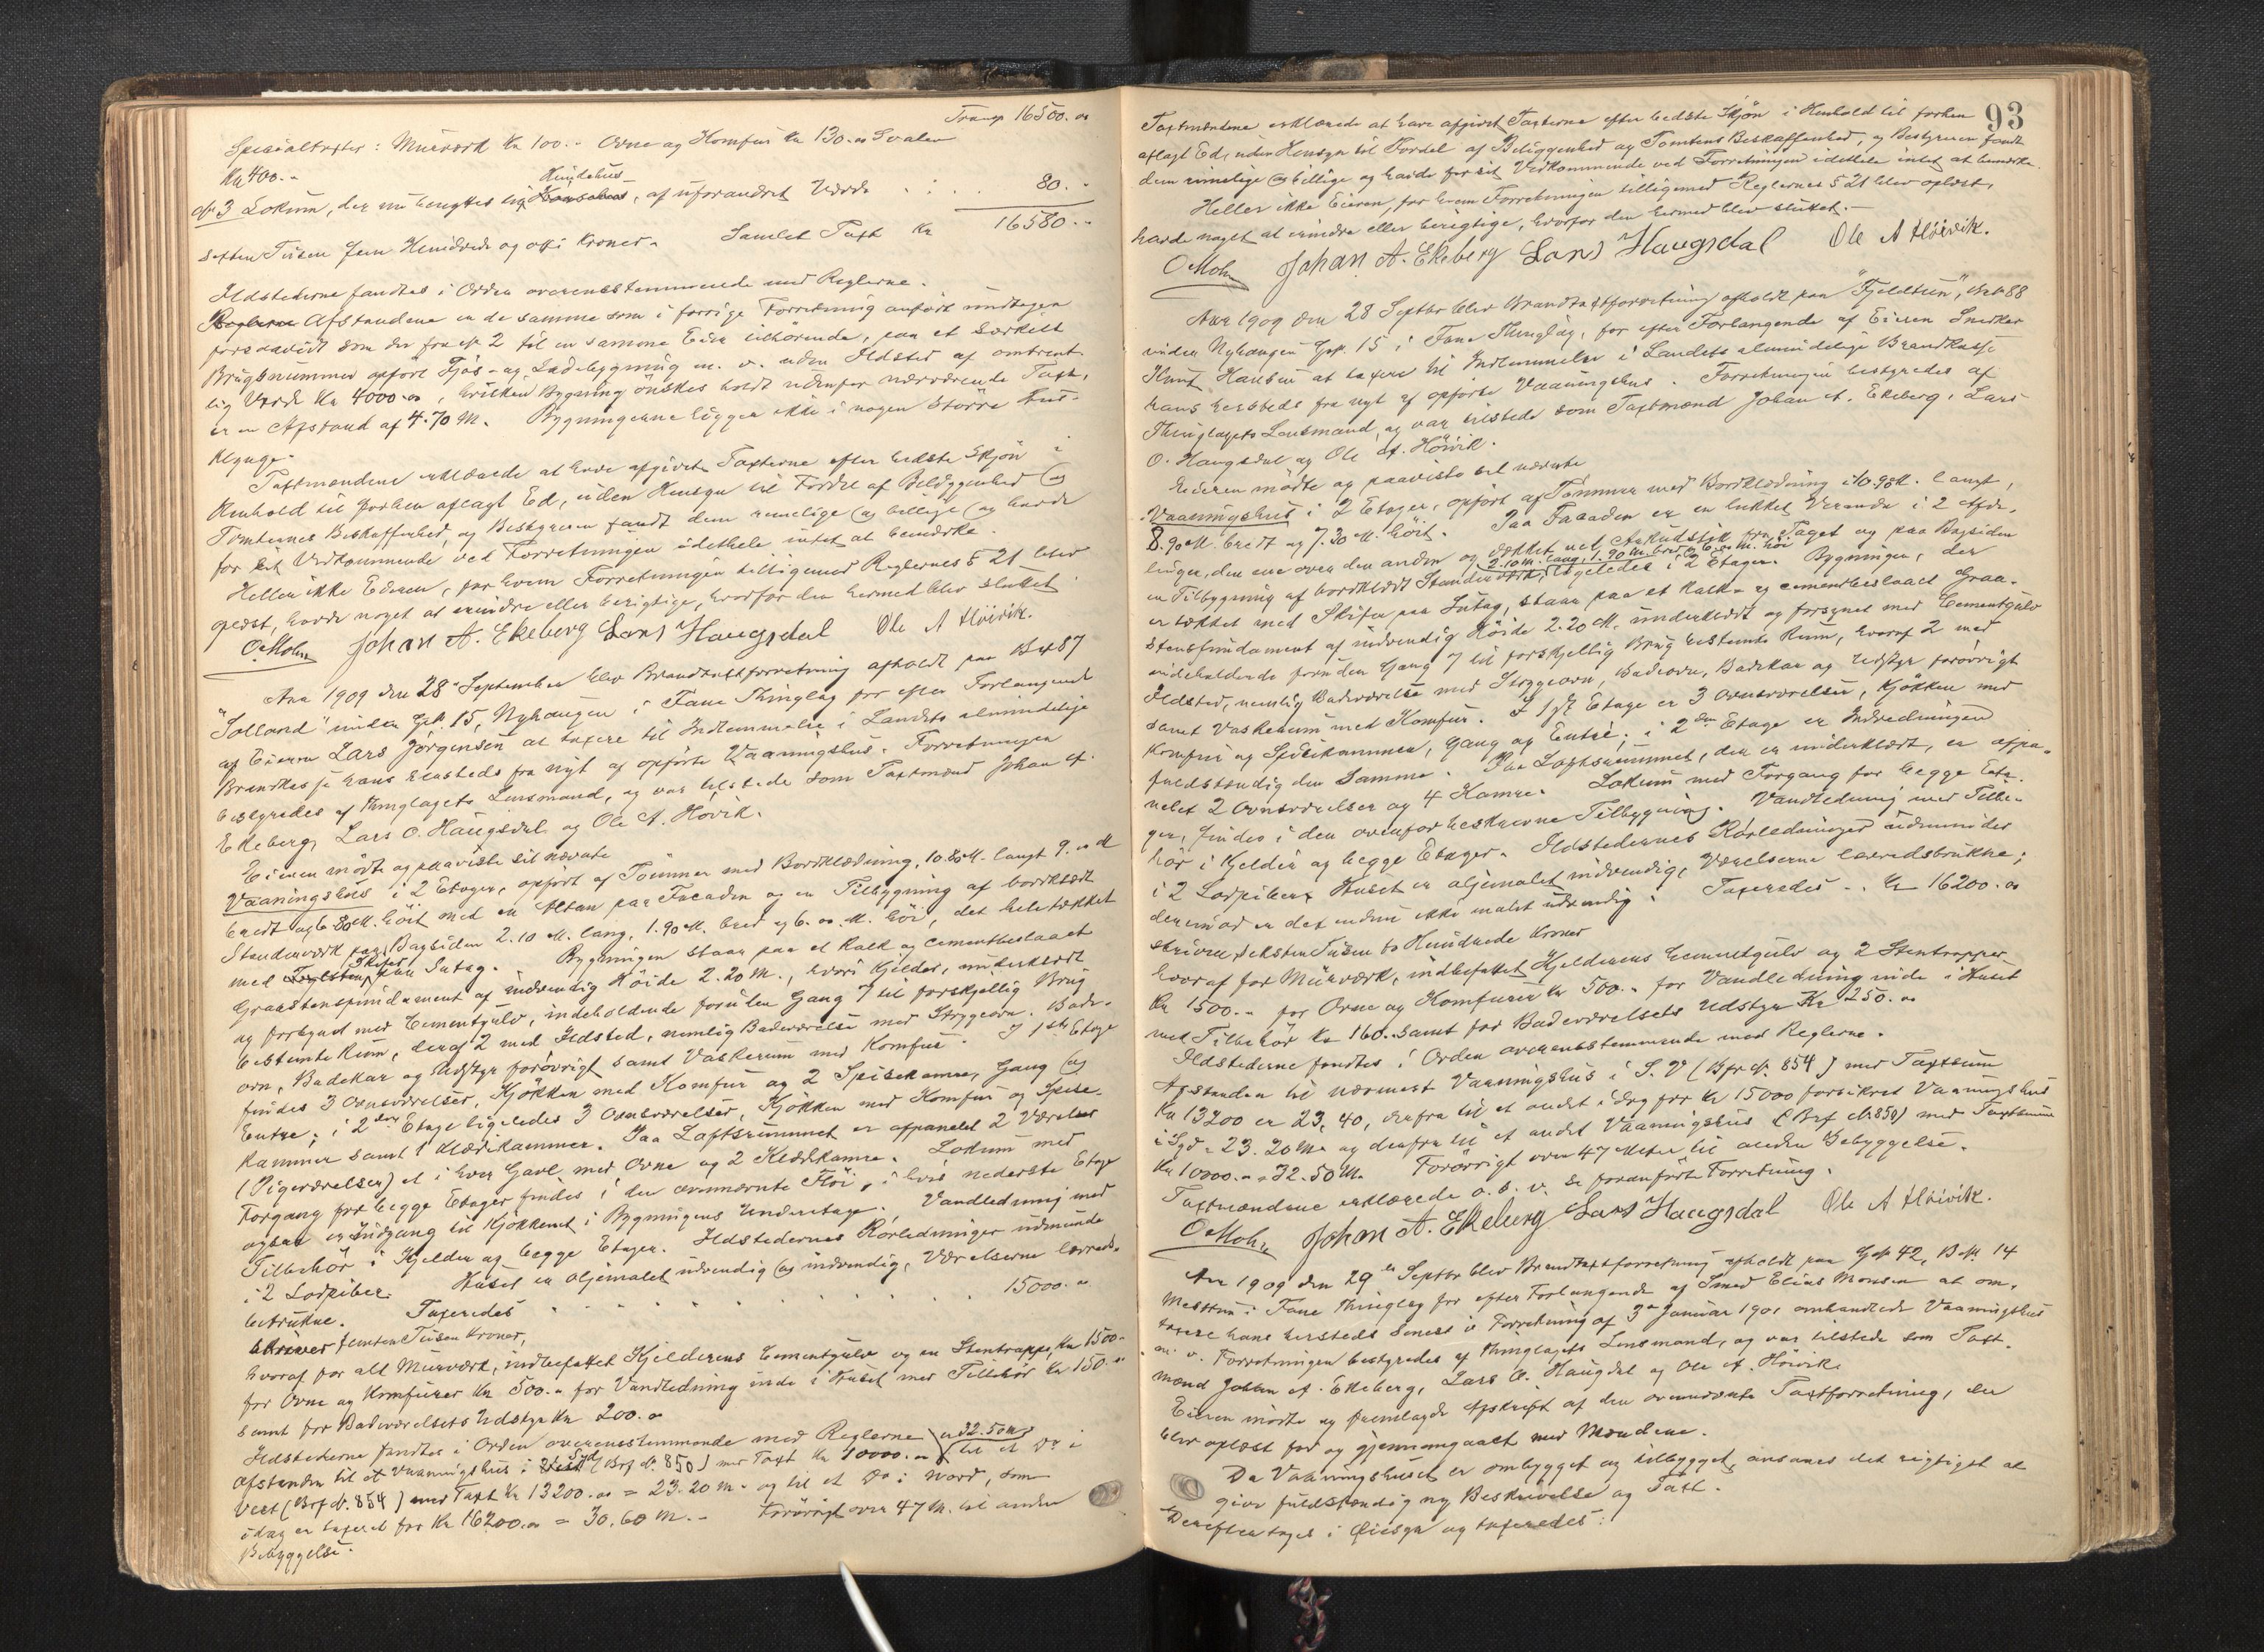 Transp 16500.00
Specialtaxter: Murværk Kr 100.- Ovne og Komfur Kr 130.00 Svalen
Kr 400.-
Hundehus
№ 3 Lokum, der nu benyttes til Hönsehus, af uforandret Værdi . . . 80.-
Samlet Taxt Kr 16580.-
sexten Tusen fem Hundrede og otti Kroner.
Ildstederne fandtes i Orden overensstemmende med Reglerne.
Reglerne Afstandene er de samme som i forrige Forretning anfört undtagen
forsaavidt som der fra № 2 til en samme Eier tilhörende, paa et særkilt
Brugsnummer opfört Fjös- og Ladebygning m. v. uden Ildsted af omtrent-
lig Værdi Kr 4000.00, hvilken Bygning önskes holdt udenfor nærværende Taxt,
er en Afstand af 4.70 M. Bygningerne ligger ikke i nogen större Hus-
klynge.
Taxtmændene erklærede at have afgivet Taxterne efter bedste Skjön i
Henhold til forhen aflagt Ed, uden Hensyn til Fordel af Beliggenhed og
Tomternes Beskaffenhed, og Bestyreren fandt dem rimelige og billige og havde
for sit Vedkommende ved Forretningen idethele intet at bemærke.
Heller ikke Eieren, for hvem Forretningen tilligemed Reglernes § 21 blev
oplæst, havde noget at erindre eller berigtige, hvorfor den hermed blev sluttet.
O Mohn Johan A. Ekeberg Lars Haugsdal Ole A Höivik.
Aar 1909 den 28 September blev Brandtaxtforretning afholdt paa B№ 87
"Solland" under G№ 15, Nyhaugen i Fane Thinglag for efter Forlangende
af Eieren Lars Jörgensen at taxere til Indlemmelse i Landets almindelige
Brandkasse hans hersteds fra nyt af opförte Vaaningshus. Forretningen
bestyredes af Thinglagets Lensmand, og var tilstede som Taxtmænd Johan A.
Ekeberg, Lars O. Haugsdal og Ole A. Hövik.
Eieren mödte og paaviste sit nævnte
Vaaningshus i 2 Etager, opfört af Tömmer med Bordklædning, 10.80 M. langt 9.00 M
bredt og 6.80 M. höit med en Altan paa Facaden og en Tilbygning af bordklædt
Stenderværk paa Bagsiden 2.10 M. lang, 1.90 M. bred og 6.00 M. höi, det hele tækket
Skifer
med Teglsten paa Sutag. Bygningen staar paa et kalk og cementbeslaaet
Graastensfundament af indvendig Höide 2.20 M., hvori Kjelder, underklædt
og forsynet med Cementgulv, indeholdende foruden Gang 7 til forskjellig Brug
bestemte Rum, heraf 2 med Ildsted, nemlig Badeværelse med Strygeovn, Bade-
ovn, Badekar og Udstyr forövrigt samt Vaskerum med Komfur. I 1ste Etage
findes 3 Ovnsværelser, Kjökken med Komfur og 2 Spisekamre, Gang og
Entre; i 2den Etage ligeledes 3 Ovnsværelser, Kjökken med Komfur og Spise-
kammer samt 1 Klædekammer. Paa Loftsrummet er afpanelet 2 Værelser
(Pigeværelser) et i hver Gavl med Ovne og 2 Klædekamre. Lokum med
Forgang for begge Etager findes i den ovennævnte Flöi, i hvis nederste Etage
ogsaa er Indgang til Kjökkenet i Bygningens Underetage. Vandledning med
Tilbehör i Kjelder og begge Etager. Ildstedernes Rörledninger udmunde
i 2 Lodpiber. Huset er oljemalet udvendig og indvendig, Værelserne lærreds-
betrukne. Taxeredes . . . . . . . . 15000.00
skriver femten Tusen Kroner,
hvoraf for alt Murværk, indbefattet Kjelderens Cementgulv og en Stentrappe, Kr 1500.-
for Ovne og Komfurer Kr 500.00 for Vandledning inde i Huset med Tilbehör Kr 150.00
samt for Badeværelsets Udstyr Kr 200.00
Ildstederne fandtes i Orden overensstemmende med Reglerne = 32.50 M,
Afstanden til et Vaaningshus i Vest Syd (Brf № 850) med Taxt Kr 10000.00 til et Do i
Vest (Brf № 854) med Taxt Kr 13200.00 = 23.20 M. og til et Do i Nord, som
idag er taxeret for Kr 16200.00 = 30.60 M. - Forövrigt over 47 M. til anden
Bebyggelse.
93
Taxtmændene erklærede at have afgivet Taxterne efter bedste Skjön i Henhold til forhen
aflagt Ed, uden Hensyn til Fordel af Beliggenhed og Tomtens Beskaffenhed, og Bestyreren fandt
dem rimelige og billige og havde for sit Vedkommende ved Forretningen idethele intet at bemærke.
Heller ikke Eieren, for hvem Forretningen tilligemed Reglernes § 21 blev oplæst,
havde noget at erindre eller berigtige, hvorfor den hermed blev sluttet.-
O Mohn Johan A. Ekeberg Lars Haugsdal Ole A Höivik.
Aar 1909 den 28 Septbr blev Brandtaxtforretning afholdt paa "Fjeldtun", B№ 88
under Nyhaugen G№ 15 i Fane Thinglag, for efter Forlangende af Eieren Snedker
Knut Hansen at taxere til Indlemmelse i Landets almindelige Brandkasse
hans hersteds fra nyt af opförte Vaaningshus. Forretningen bestyredes af
Thinglagets Lensmand, og var tilstede som Taxtmænd Johan A. Ekeberg, Lars
O. Haugsdal og Ole A. Höivik.
Eieren mödte og paaviste sit nævnte
Vaaningshus i 2 Etager, opfört af Tömmer med Bordklædning 10.90 M. langt,
8.90 M. bredt og 7.30 M. höit. Paa Facaden er en lukket Veranda i 2 Afde-
linger, den ene over den anden og dækket ved Arkudstik fra Taget og paa Bagsiden
2.10 M. lang, 1.90 M. bred og 6.00 M. höi
en Tilbygning af bordklædt Stenderværk, ligeledes i 2 Etager. Bygningen, der
er tækket med Skifer paa Sutag, staar paa et kalk- og cementbeslaaet Graa-
stensfundament af indvendig Höide 2.20 M. underklædt og forsynet med Cementgulv
indeholdende foruden Gang 7 til forskjellig Brug bestemte Rum, hvoraf 2 med
Ildsted, nemlig Badeværelse med Strygeovn, Badeovn, Badekar og Udstyr forövrigt
samt Vaskerum med Komfur. I 1ste Etage er 3 Ovnsværelser, Kjökken med
Komfur og Spisekammer, Gang og Entré; i 2den Etage er Indredningen
fuldstændig den samme. Paa Loftsrummet, der er underklædt, er afpa-
nelet 2 Ovnsværelser og 4 Kamre. Lokum med Forgang for begge Eta-
ger, findes i den ovenfor beskrevne Tilbygning. Vandledning med Tilbe-
hör i Kjelder og begge Etager. Ildstedernes Rörledninger udmunder
i 2 Lodpiber. Huset er oljemalet indvendig, Værelserne lærredsbetrukne;
derimod er det endnu ikke malet udvendig. Taxeredes . . Kr 16200.00
skriver seksten Tusen to Hundrede Kroner
hvoraf for Murværk, indbefattet Kjelderens Cementgulv og 2 Stentrapper
Kr 1500.- for Ovne og Komfurer Kr 500.- for Vandledning inde i Huset
med Tilbehör Kr 160.- samt for Badeværelsets Udstyr Kr 250.00
Ildstederne fandtes i Orden overensstemmende med Reglerne.
Afstanden til nærmest Vaaningshus i S. V (Bfr №. 854) med Taxtsum
Kr 13200 er 23,40, derfra til et andet idag for Kr 15000 forsikret Vaaningshus
i Syd = 23.20 M. og derfra til et andet Vaaningshus (Brf № 850) med Taxtsum
Kr 10000.- = 32.50 M. Forövrigt over 47 Meter til anden Bebyggelse.
Taxtmændene erklærede o. s. v. se foranförte Forretning.
O Mohn Johan A. Ekeberg Lars Haugsdal Ole A Höivik.
Aar 1909 den 29de Septbr blev Brandtaxtforretning afholdt paa G№ 42, B№ 14
Messtun i Fane Thinglag for efter Forlangende af Smed Elias Monsen at om-
taxere hans hersteds senest i Forretning af 3 Januar 1901 omhandlede Vaaningshus
m. v. Forretningen bestyredes af Thinglagets Lensmand, og var tilstede som Taxt-
mænd Johan A. Ekeberg, Lars O. Haugdal og Ole A. Höivik.
Eieren mödte og fremlagde Afskrift af den ovennævnte Taxtforretning, der
blev oplæst for og gjennemgaaet med Mændene.
Da Vaaningshuset er ombygget og tilbygget, ansaaes det rigtigst at
give fuldstændig ny Beskrivelse og Taxt.
Derefter toges i Öiesyn og taxeredes: